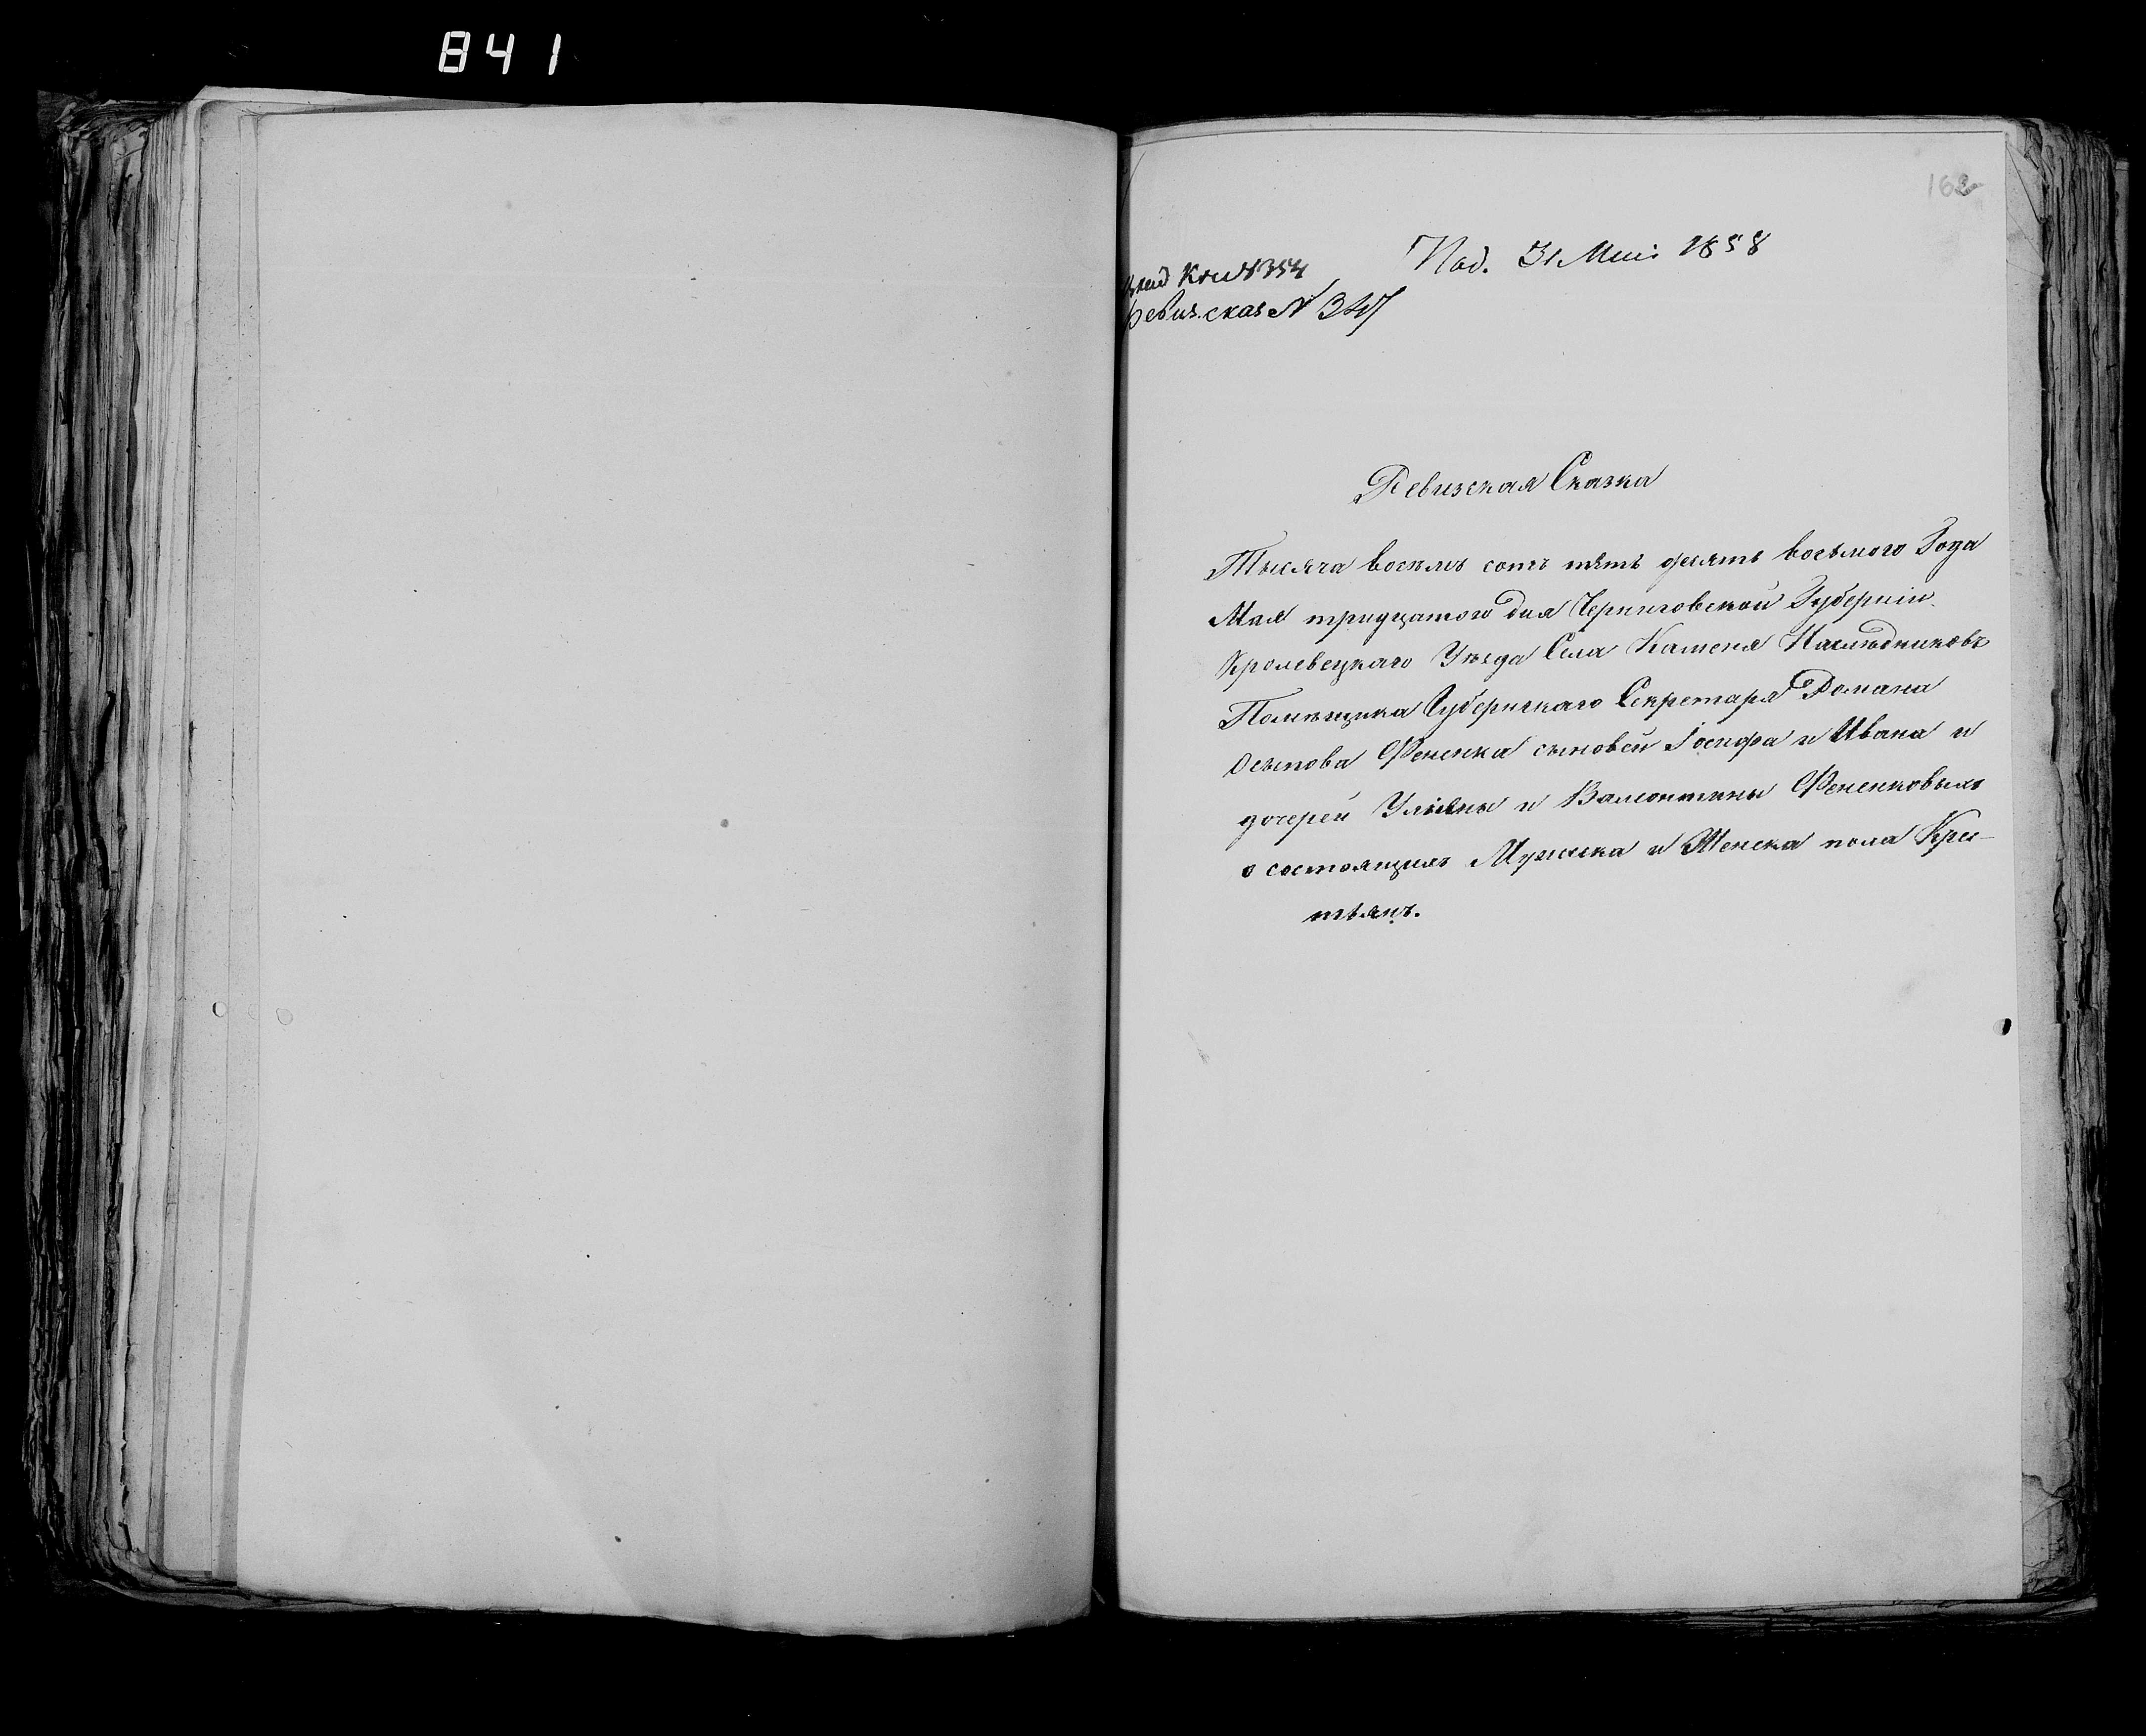 841
162
Под. 31 Маи 1858
Кни № 354
Ревиз. сказ № 347
Ревизская Сказка
Тысяча восемъ сотъ пять десять восьмого Года
Мая тридцатого дня Черниговской Губернiи
Кролевецкаго Уѣзда Села Каменя Наслѣдниковъ
Помѣщика Губернскаго Секретаря Романа
Осипова Фененка сыновей Іосифа и Ивана и
дочерей Улiяны и Валентины Фененковыхъ
о состоящихъ Мужеска и Женска пола Крес-
тьянъ.